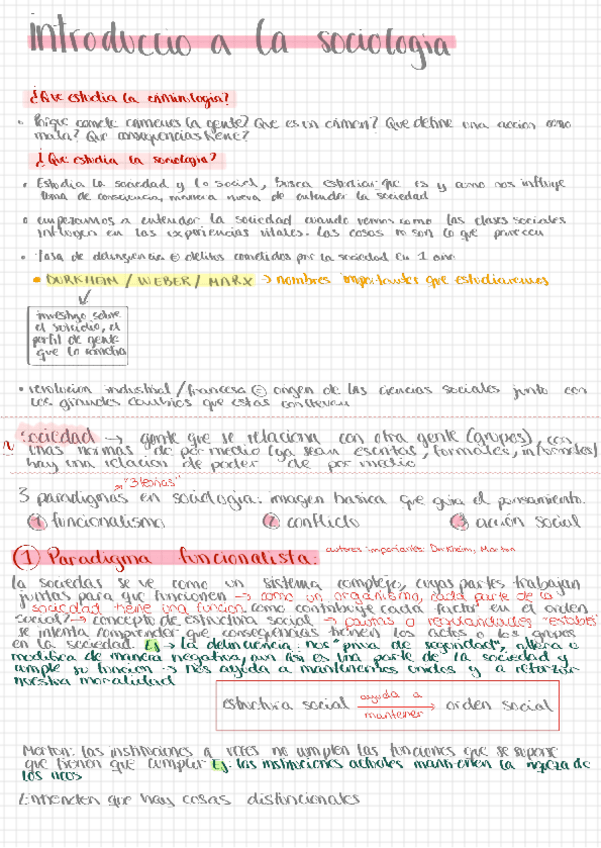 Introduccio a la sociologia
¿Que estudia la criminologia?
Porque comete crimenes la gente? Que es un crimen? Que define una accion como
mala? Que consequencias tiene?
¿Que estudia la sociologia?
Estudia la sociedad y lo social, busca estudiar que es y como nos influye
toma de consciencia, manera nueva de entender la sociedad
empezamos a entender la sociedad cuando vemos como las clases sociales
influyen en las experiencias vitales. Las cosas no son lo que parecen
Tasa de delinquencia = delitos cometidos por la sociedad en 1 año
DURKHEIM / WEBER / MARX → nombres importantes que estudiaremos
investigo sobre
el suicidio, el
perfil de gente
que lo cometia
revolucion industrial / francesa = origen de las ciencias sociales junto con
los grandes cambios que estas conllevan
Sociedad → gente que se relaciona con otra gente (grupos), con
unas normas de por medio (ya sean escritas, formales, informales)
hay una relacion de poder de por medio
"3 teorias"
3 paradigmas en sociologia: imagen basica que guia el pensamiento.
1 funcionalismo 2 conflicto 3 acción social
1 Paradigma funcionalista: autores importantes: Durkheim, Merton
la sociedad se ve como un sistema complejo, cuyas partes trabajan
juntas para que funcionen → como un organismo, cada parte de la
sociedad tiene una funcion. como contribuye cada factor en el orden
social? → concepto de estructura social → pautas o regularidades "estables"
se intenta comprender que consequencias tienen los actos o los grupos
en la sociedad. Ej → la delincuencia: nos "priva de seguridad", altera o
modifica de manera negativa, aun asi es una parte de la sociedad y
cumple su funcion → nos ayuda a mantenernos unidos y a reforzar
nuestra moralidad
estructura social ayuda a mantener → orden social
Merton: las instituciones a veces no cumplen las funciones que se supone
que tienen que cumplir Ej: las instituciones actuales mantienen la riqueza de
los ricos
Entienden que hay cosas disfuncionales